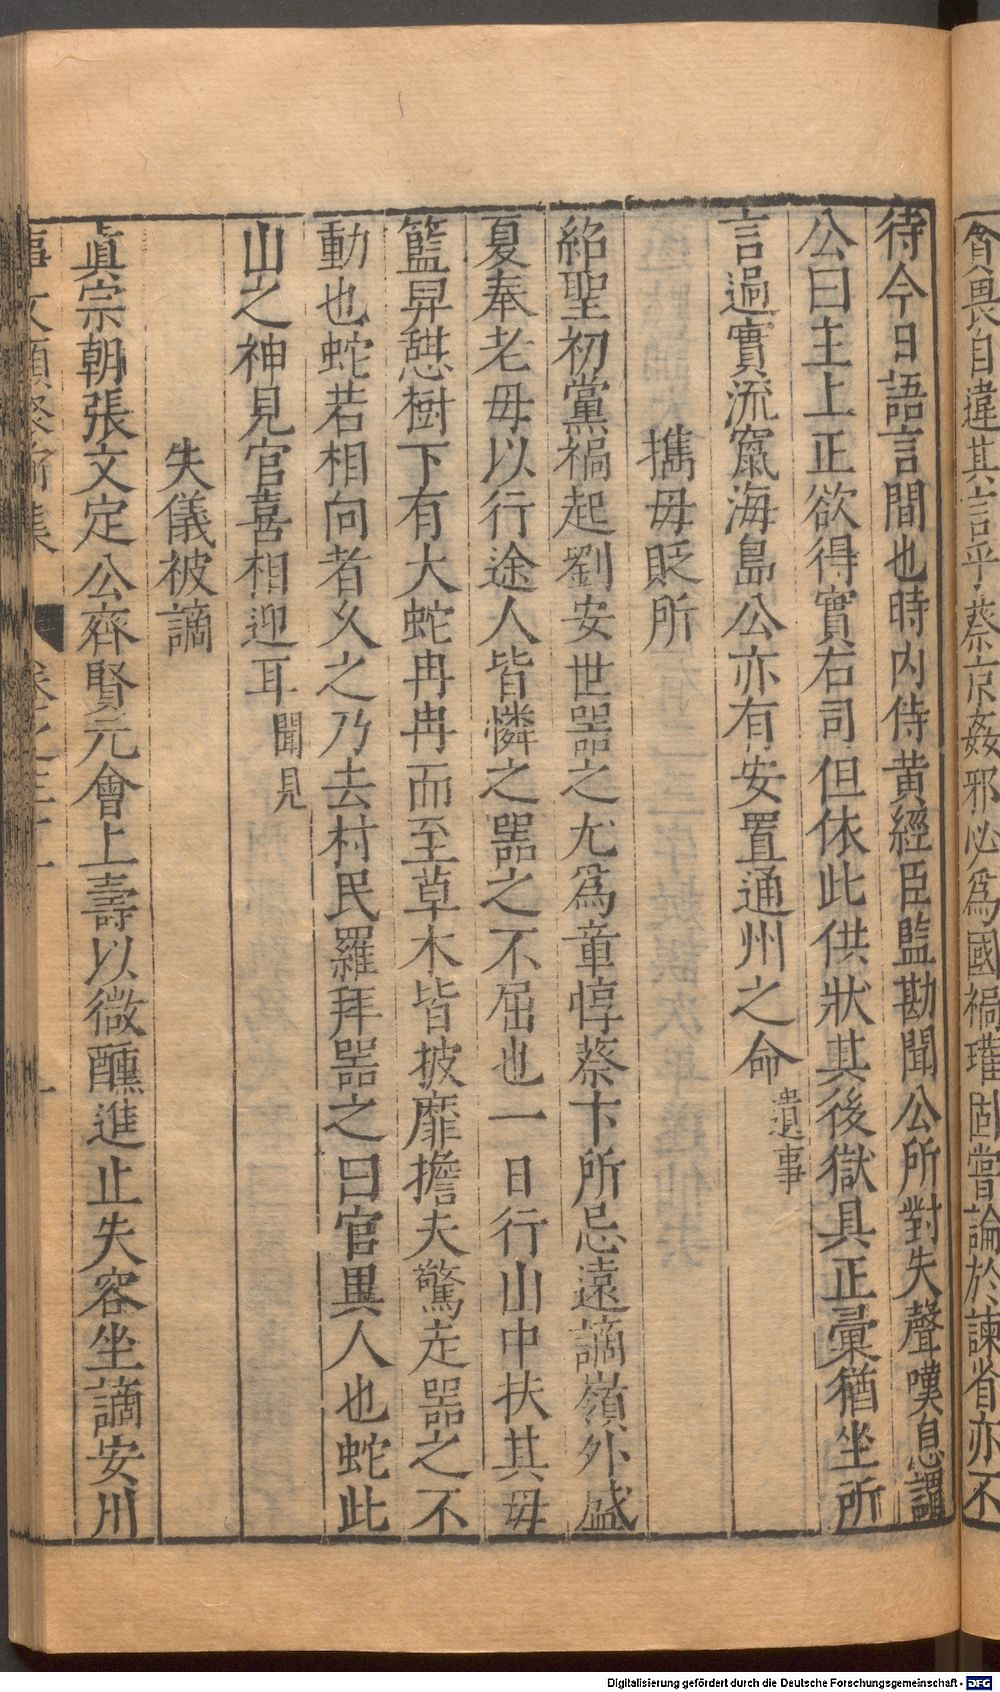 貧畏自違其言乎蔡京姦邪必爲國禍瓘固嘗論於諫省亦不
待今日語言間也時内侍黃經臣監勘聞公所對失聲嘆息謂
公曰主上正欲得實右司但依此供狀其後獄具正彙猶坐所
言過實流竄海島公亦有安置通州之命遺事
攜母貶所
紹聖初黨禍起劉安世噐之尤爲章惇蔡卞所忌遠謫嶺外盛
夏奉老母以行途人皆憐之噐之不屈也一日行山中扶其母
籃昇憇樹下有大蛇冉冉而至草木皆披靡擔夫驚走噐之不
動也蛇若相向者久之乃去村民羅拜噐之曰官異人也蛇此
山之神見官喜相迎耳聞見
失儀被謫
眞宗朝張文定公齊賢元會上壽以微醺進止失容坐謫安州
Digitalisierung gefördert durch die Deutsche Forschungsgemeinschaft - DFG